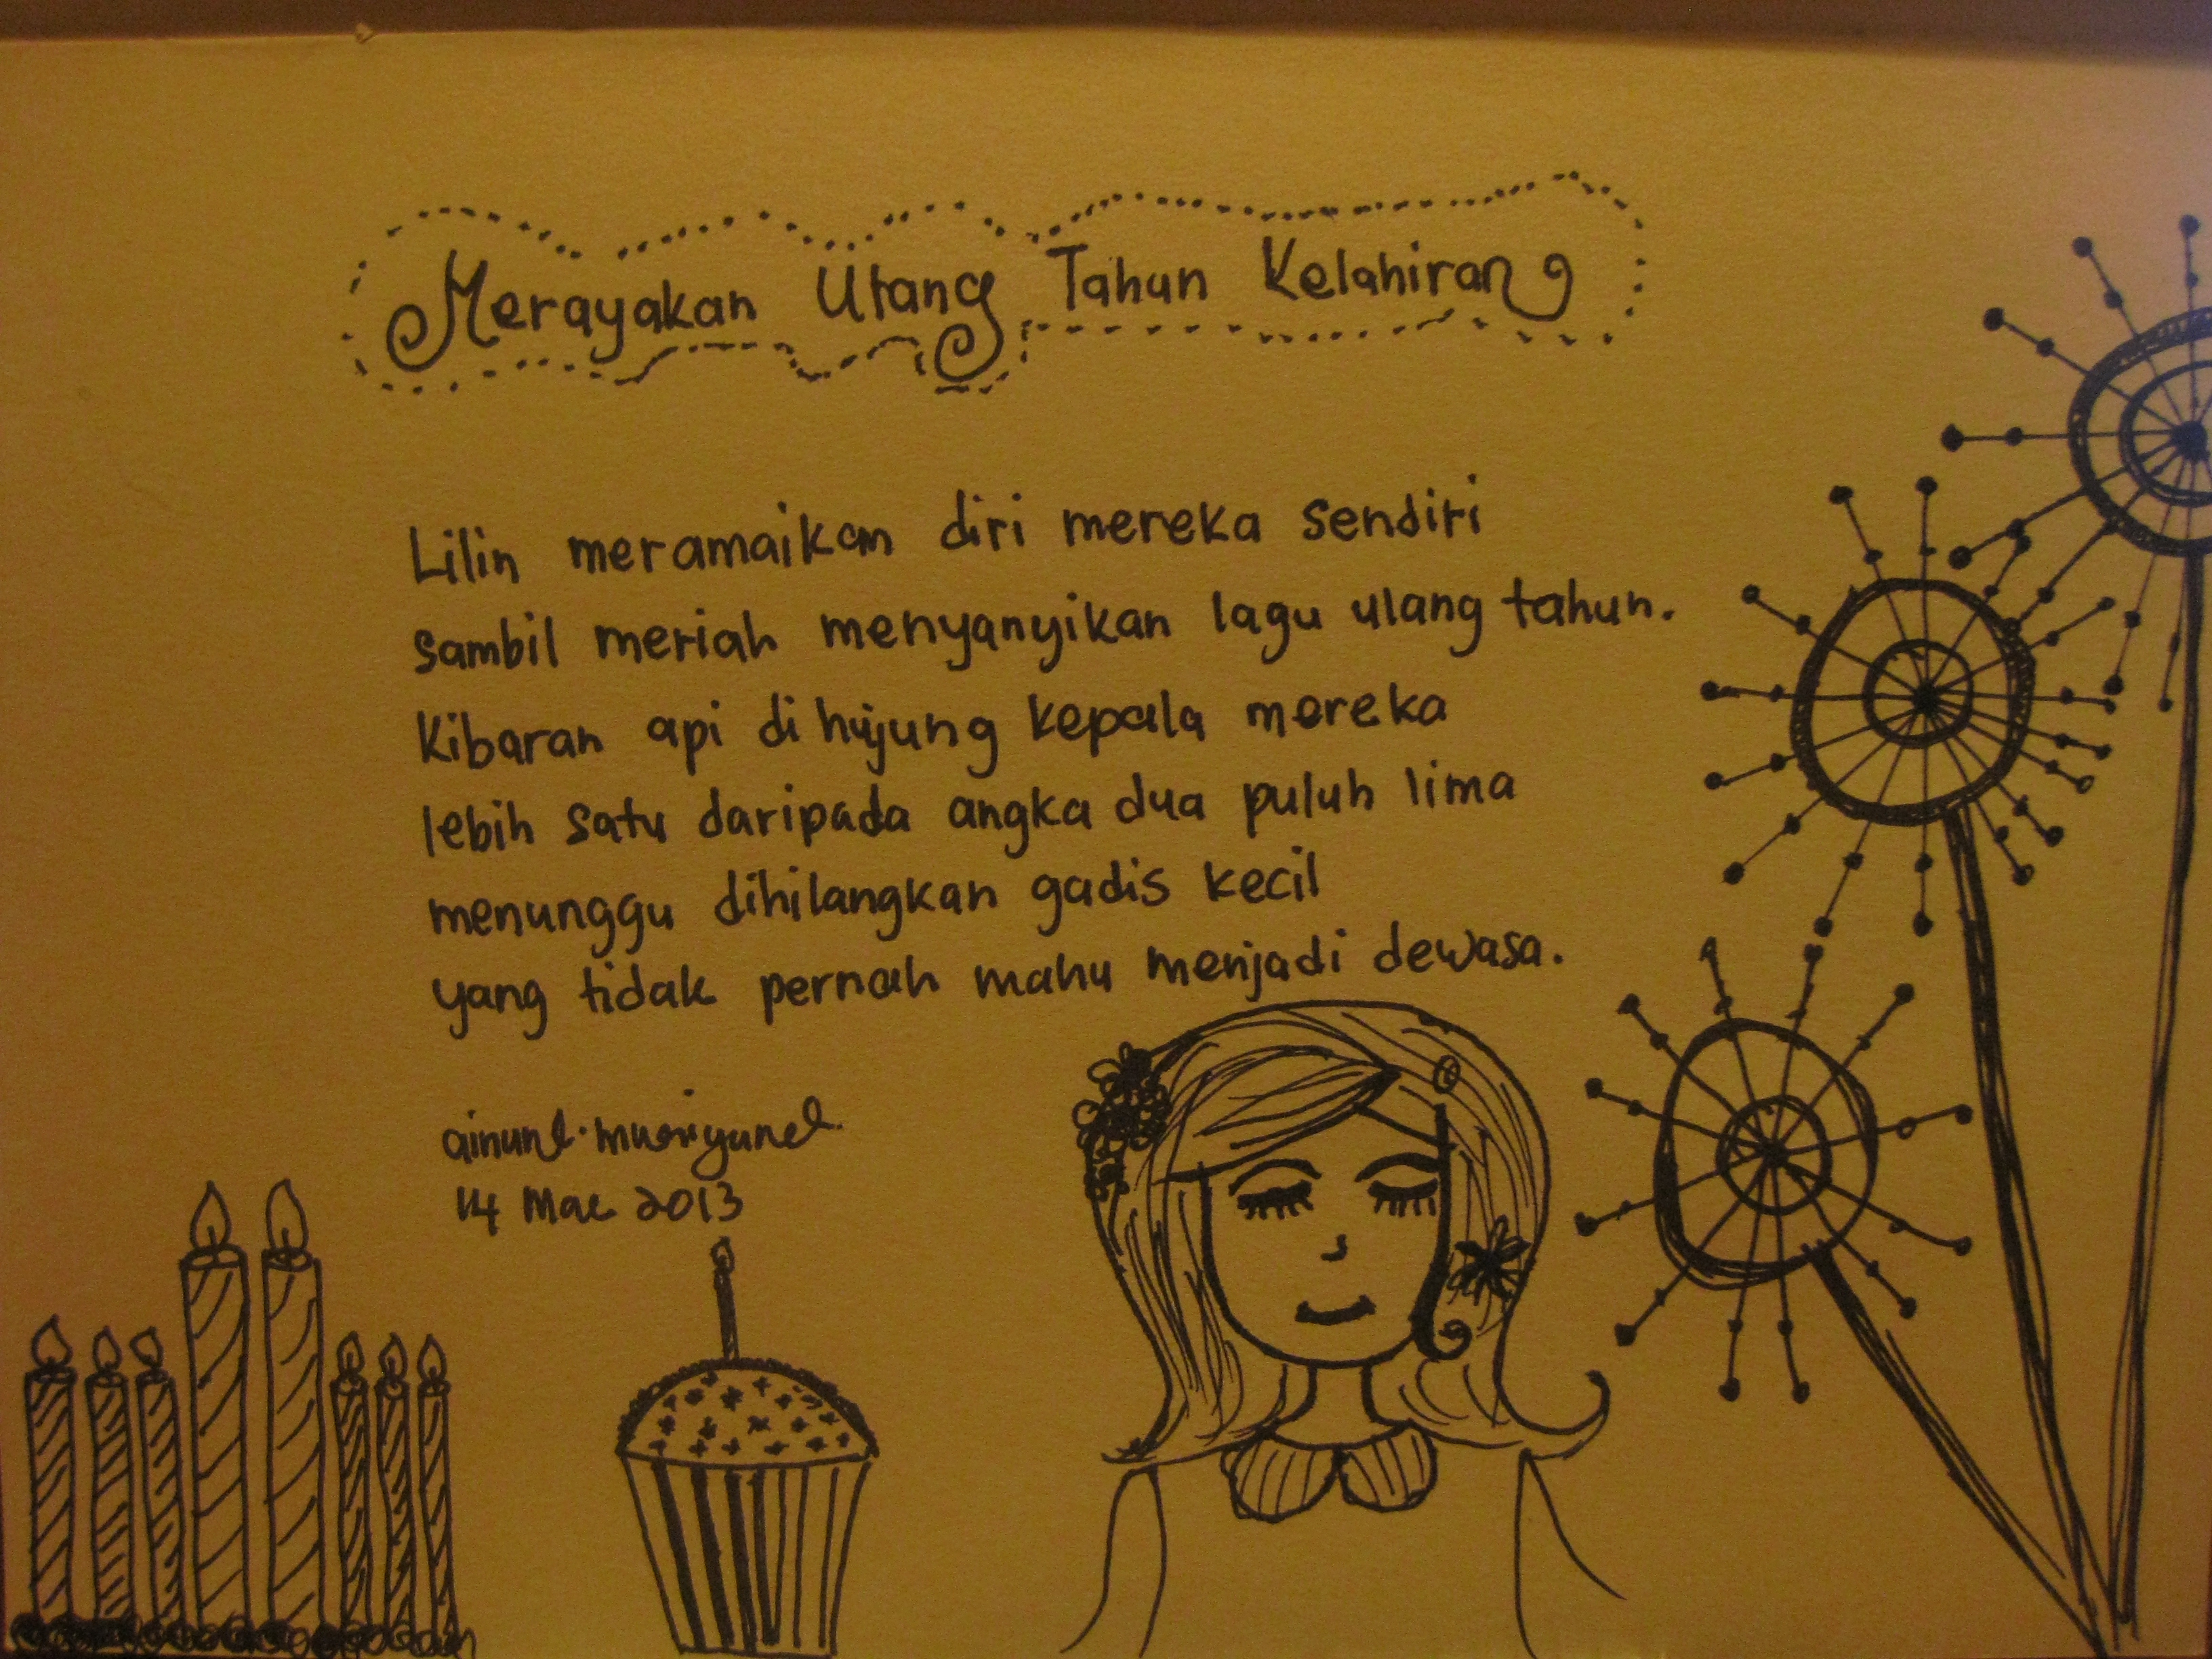 Merayakan Ulang Tahun Kelahiran
Lilin meramaikan diri mereka sendiri
sambil meriah menyanyikan lagu ulang tahun.
Kibaran api di hujung kepala mereka
lebih satu daripada angka dua puluh lima
menunggu dihilangkan gadis kecil
yang tidak pernah mahu menjadi dewasa.
14 Mac 2013